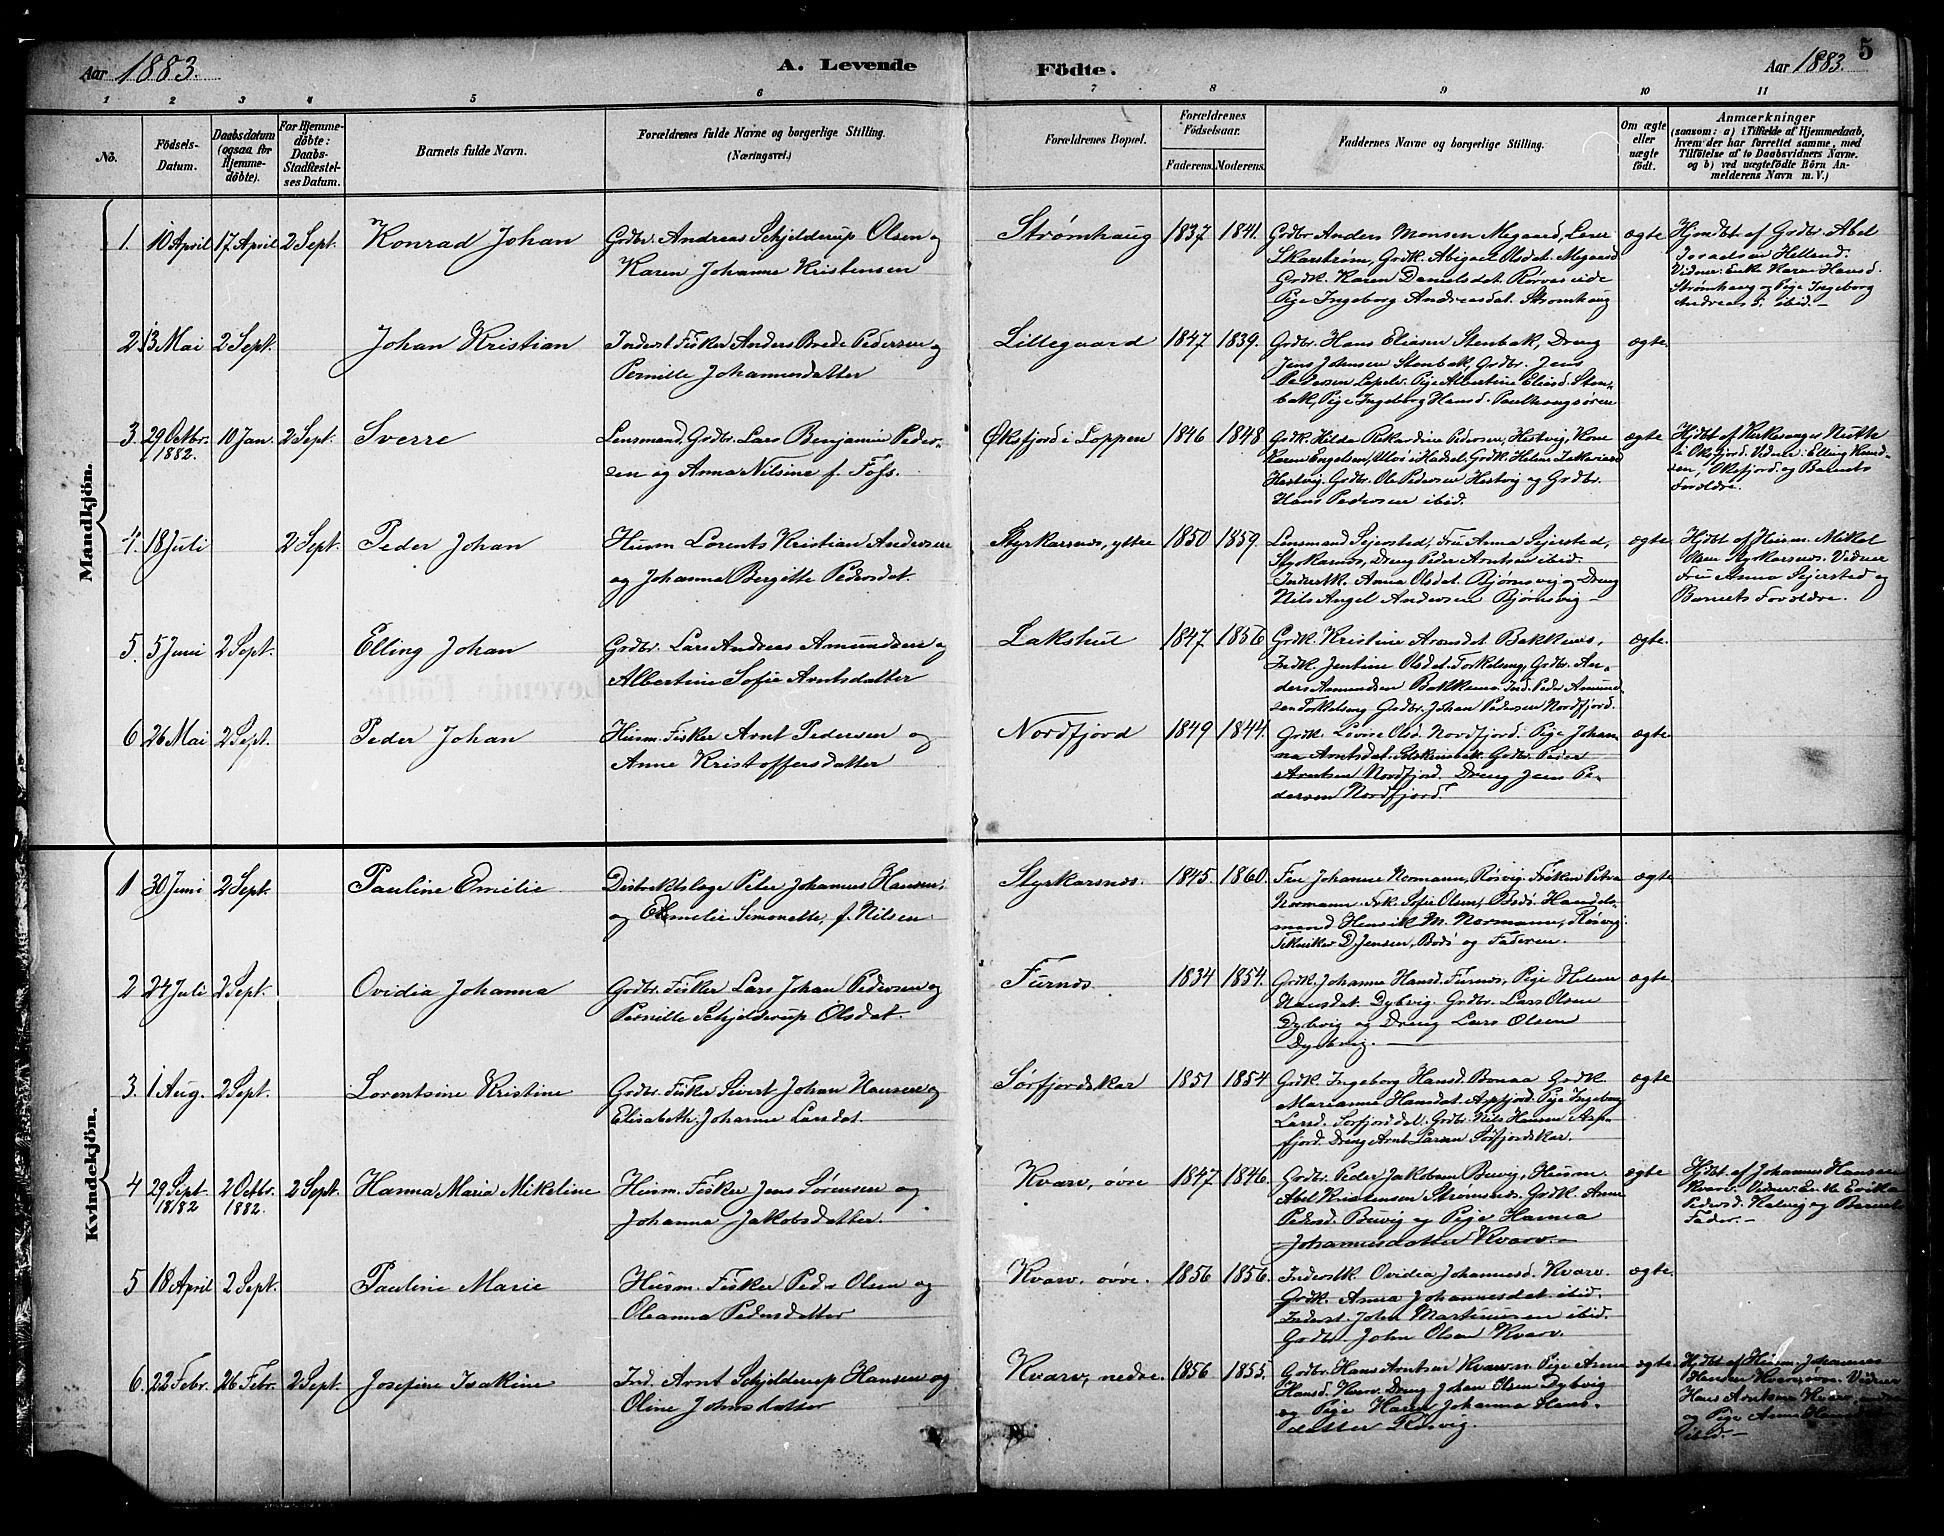 Aar 1883.
A. Levende
Födte.
Aar 1883.
5
1 2 3 4 5 6 7 8 9 10 11
No.
Födsels-
Datum.
Daabsdatum
(ogsaa for
Hjemme-
döbte).
For Hjemme-
döbte:
Daabs-
Stadfæstel-
ses Datum.
Barnets fulde Navn.
Forældrenes fulde Navne og borgerlige Stilling.
(Næringsvei.)
Forældrenes Bopæl.
Forældrenes
Födselsaar.
Faderens. Moderens.
Faddernes Navne og borgerlige Stilling.
Om ægte
eller
uægte
født.
Anmærkninger
(saasom: a) i Tilfælde af Hjemmedaab,
hvem der har forrettet samme, med
Tilföielse af to Daabsvidners Navne.
og b) ved uægtefödte Börn An-
melderens Navn m. V.)
Mandkjön.
1. 10 April 17 April 2 Sept. Konrad Johan
Grdbr. Andreas Schjelderup Olsen og
Karen Johanne Kristensen
Strømhaug 1837 1841.
Grdbr Anders Monsen Megaard,
Skarstrøm, Grdk. Abigael Olsdat. Megaard
Grdk. Karen Danielsdat. Rørvas eide
Pige Ingeborg Andreasdat. Strømhaug
ægte
Hjmdbt. af Grdbr. Abel
Helland.
Vidner: Enke Karen Hansd.
Strømhaug og Pige Ingeborg
Andreasd. ibid. —
2. 13 Mai 2 Sept. Johan Kristian
Inderst Fisker Anders Brede Pedersen og
Pernille Johannesdatter
Lillegaard 1847 1839.
Grdbr. Hans Eliasen Stenbak, Dreng
Jens Johnsen Stenbak, Grdbr. Jens
Pedersen Lapelv. Pige Albertine Eliasd. Sten-
bak, Pige Ingeborg Hansd.
ægte
3. 29 Octbr. 1882. 10 Jan. 2 Sept. Sverre
Lensmand, Grdbr. Lars Benjamin Peder-
sen og Anna Nilsine f. Foss.
Øksfjord i Loppen 1846 1848
Grdk. Hilda Rikardine Pedersen, Hestvig, Kone
Karen Engelsen, Ulvø i Hadsel, Grdk. Helene Zakariasd
Hestvig. Grdbr. Ole Pedersen Hestvig og Grdbr.
Hans Pedersen ibid.
ægte
Hjdbt. af Kirkesanger
i Øksfjord. Vidner: Elling Knud-
sen, Øksfjord og Barnets
Forældre.
4. 18 Juli 2 Sept. Peder Johan
Husm Lorents Kristian Andersen
og Johanna Bergitte Pedersdat.
Styrkarsnes, ytre 1850 1859.
Lensmand Sejersted, Fru Anna Sejersted,
Styrkarsnes, Dreng Peder Arntsen ibid.
Inderstk. Anna Olsdat. Bjørnsvig og Dreng
Nils Angel Andersen Bjørnsvig —
ægte
Hjdbt af Husm. Mikal
Olsen Styrkarsnes. Vidner
Fru Anna Sejersted og
Barnets Forældre.
5. 5 Juni 2 Sept. Elling Johan
Grdbr. Lars Andreas Amundsen og
Albertine Sofie Arntsdatter
Lakshul 1847 1856
Grdk. Kristine Bakkens,
Indk. Jentine Olsdat. Torkelseng, Grdbr. An-
ders Amundsen Bakkens. Ind. Peder Amund-
sen Torkelseng Grdbr. Johan Pedersen Nordfjord.
ægte.
6. 26 Mai 2 Sept. Peder Johan
Husm. Fisker Arnt Pedersen og
Anne Kristoffersdatter
Nordfjord 1849 1844.
Grdk. Lovise Olsd. Nordfjord. Pige Johan-
na Arntsdat. Grdbr. Peder
Arntsen Nordfjord. Dreng Jens Pe-
dersen Nordfjord.
ægte.
Kvindekjön.
1 30 Juni 2 Sept. Pauline Emilie
Distriktslæge Peter Johannes Hansen.
og Emelie Simonette, f. Nilsen
Styrkarsnes. 1845. 1860.
Fru Johanne Normann, Røsvig. Frøken Petra
Normann. Frk. Sofie Olsen, Bodø. Handels-
mand Henrik M. Normann, Røsvig.
Tekniker D. Jensen, Bodø og Faderen.
ægte
2 24 Juli 2 Sept. Ovidia Johanna
Grdbr. Fisker Lars Johan Pedersen og
Pernille Schjelderup Olsdat.
Furnes. 1834 1854.
Grdk. Johanne Hansd. Furnes, Pige Helene
Hansdat. Dybvig. Grdbr. Lars Olsen
Dybvig og Dreng Lars Olsen
Dybvig. —
ægte.
3. 1 Aug. 2 Sept. Lorentsine Kristine
Grdbr. Fisker Sivert Johan Hansen og
Elisabeth Johanne Larsdat.
Sørfjordskar 1851 1854
Grdk. Ingeborg Hansd. Bonaa Grdk.
Marianne Hansdat. Aspfjord. Pige Ingeborg
Larsd. Sørfjorddal. Grdbr. Nils Hansen Asp-
fjord. Dreng Arnt Larsen Sørfjordskar.
ægte
4 29 Sept. 1882 2 Octbr. 1882. 2 Sept. Hanna Maria Mikeline
Husm. Fisker Jens Sørensen og
Johanna Jakobsdatter.
Kvarv, øvre 1847 1846.
Grdbr. Peder Jakobsen Buvig, Husm.
Abel Kristensen Strømsnes. Grdk. Anne
Pedersd. Buvig og Pige Hanna
Johannesdatter Kvarv. —
ægte
Hjdbt. af Johannes Hansen
Kvarv. Vidner: Enke Erika
Pedersd. Kalvig og Barnets
Fader. —
5 18 April 2 Sept. Pauline Marie
Husm. Fisker Peder Olsen og
Oleanna Pedersdatter
Kvarv, øvre. 1856 1856.
Inderstk. Ovidia Johannesd. Kvarv.
Grdk. Anna Johannesdat. ibid.
Inderst. John Martinusen ibid.
Grdbr. John Olsen Kvarv.
ægte.
6. 22 Febr. 26 Febr. 2 Sept. Josefine Isakine
Ind. Arnt Schjelderup Hansen og
Oline Johnsdatter
Kvarv, nedre 1856 1855.
Grdbr. Hans Arntsen Kvarv n. Pige Anne
Hansd. Kvarv. Dreng Johan Olsen Dybvig
og Pige Karen Johanna Hans-
datter Røsvig.
ægte.
Hjdbt af Husm. Johannes
Hansen Kvarv, øvre. Vidner
Hans Arntsen Kvarv, nedre
og Pige Anne Hansd.
ibid. —